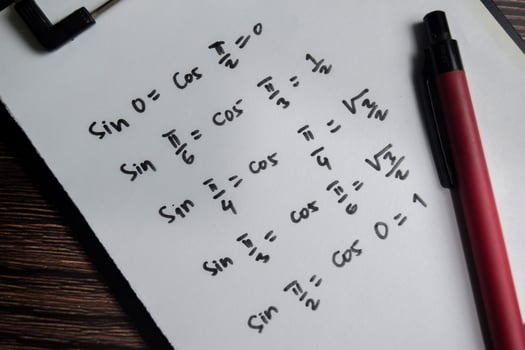 sin 0 = cos π/2 = 0
sin π/6 = cos π/3 = 1/2
sin π/4 = cos π/4 = √2/2
sin π/3 = cos π/6 = √3/2
sin π/2 = cos 0 = 1